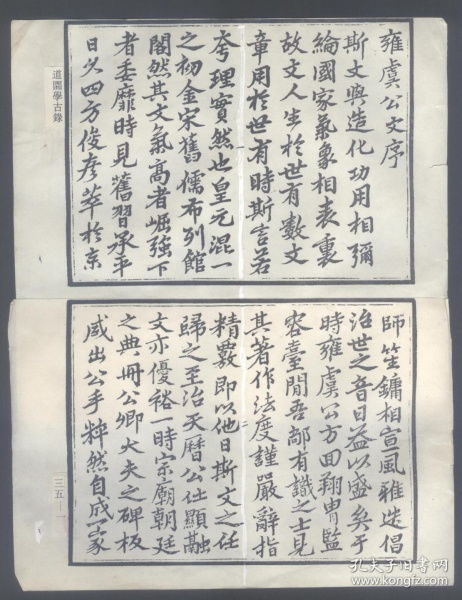 雍虞公文序
斯文與造化功用相彌
綸國家氣象相表裏
故文人生於世有數文
章用於世有時斯言若
夸理實然也皇元混一
之初金宋舊儒布列館
閣然其文氣高者崛強下
者委靡時見舊習承平
日久四方俊彥萃於京
道園學古錄
師笙鏞相宣風雅迭倡
治世之音日益以盛矣于
時雍虞公方回翔胄監
容臺間吾鄉有識之士見
其著作法度謹嚴辭指
精覈即以他日斯文之任
歸之至治天曆公仕顯融
文亦優裕一時宗廟朝廷
之典冊公卿大夫之碑板
咸出公手粹然自成一家
三五―一
孔夫子旧书网
www.kongfz.com